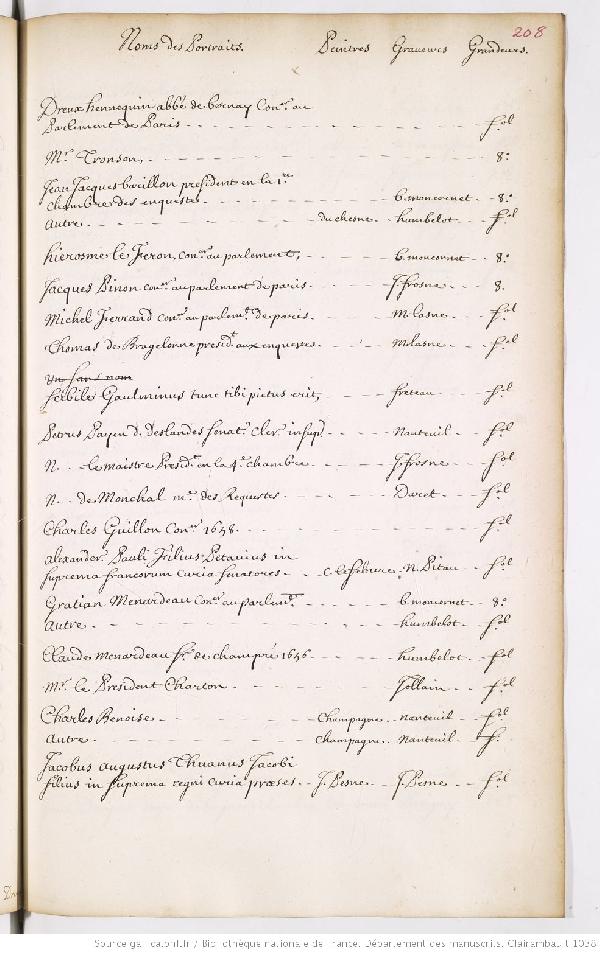 208
Noms des Portraits. Peintres Graveurs Grandeurs.
Dreux hennequin abbé de bernay Con.er au
Parlement de Paris - - - fol
Mr. Tronson, - - - 8.o
Jean Jacques barillon president en la 1.re
chambre des enquestes - - - b. moncornet - 8.o
autre - - - du chesne - humbelot - fol
hierosme le Feron, con.er au parlement, b. moncornet - 8.o
Jacques Pinon con.er au parlement de paris - - - J. frosne - 8.
Michel Ferrand con.er au parlem.t de paris - - - M. lasne - fol
Thomas de Bragelonne presid.t aux enquestes - - - M. lasne - fol
un sans nom
Gaulminus tunc tibi pictus erit, - - - freteau - fol
Petrus Payen d. Deslandes senat. Cler. - - - Nanteuil - fol
N. - le maistre Presid.t en la 4.e chambre - - - J. frosne - fol
N. - de Monchal m.e des Requestes - - - Daret - fol
Charles Guillon Con.er 1658 - - - fol
alexander. Pauli Filius Petavius in
suprema francorum Curia senatores - - C lefebvre, N. Pitau - fol
Gratian Menardeau con.er au parlem.t - - - b. moncornet - 8.o
Autre - - - humbelot - fol
Claude Menardeau sr. de champré 1656 - - - humbelot - fol
Mr. le President Charton - - - Jollain - fol
Charles Benoise - - - Champagne - nanteuil - fol
Autre - - - Champagne - Nanteuil - f.
Jacobus augustus Thuanus Jacobi
filius in suprema regni curia præses - J. Lesne - J. Lesne - fol
Source gallica.bnf.fr / Bibliothèque nationale de France. Département des manuscrits. Clairambault 1038